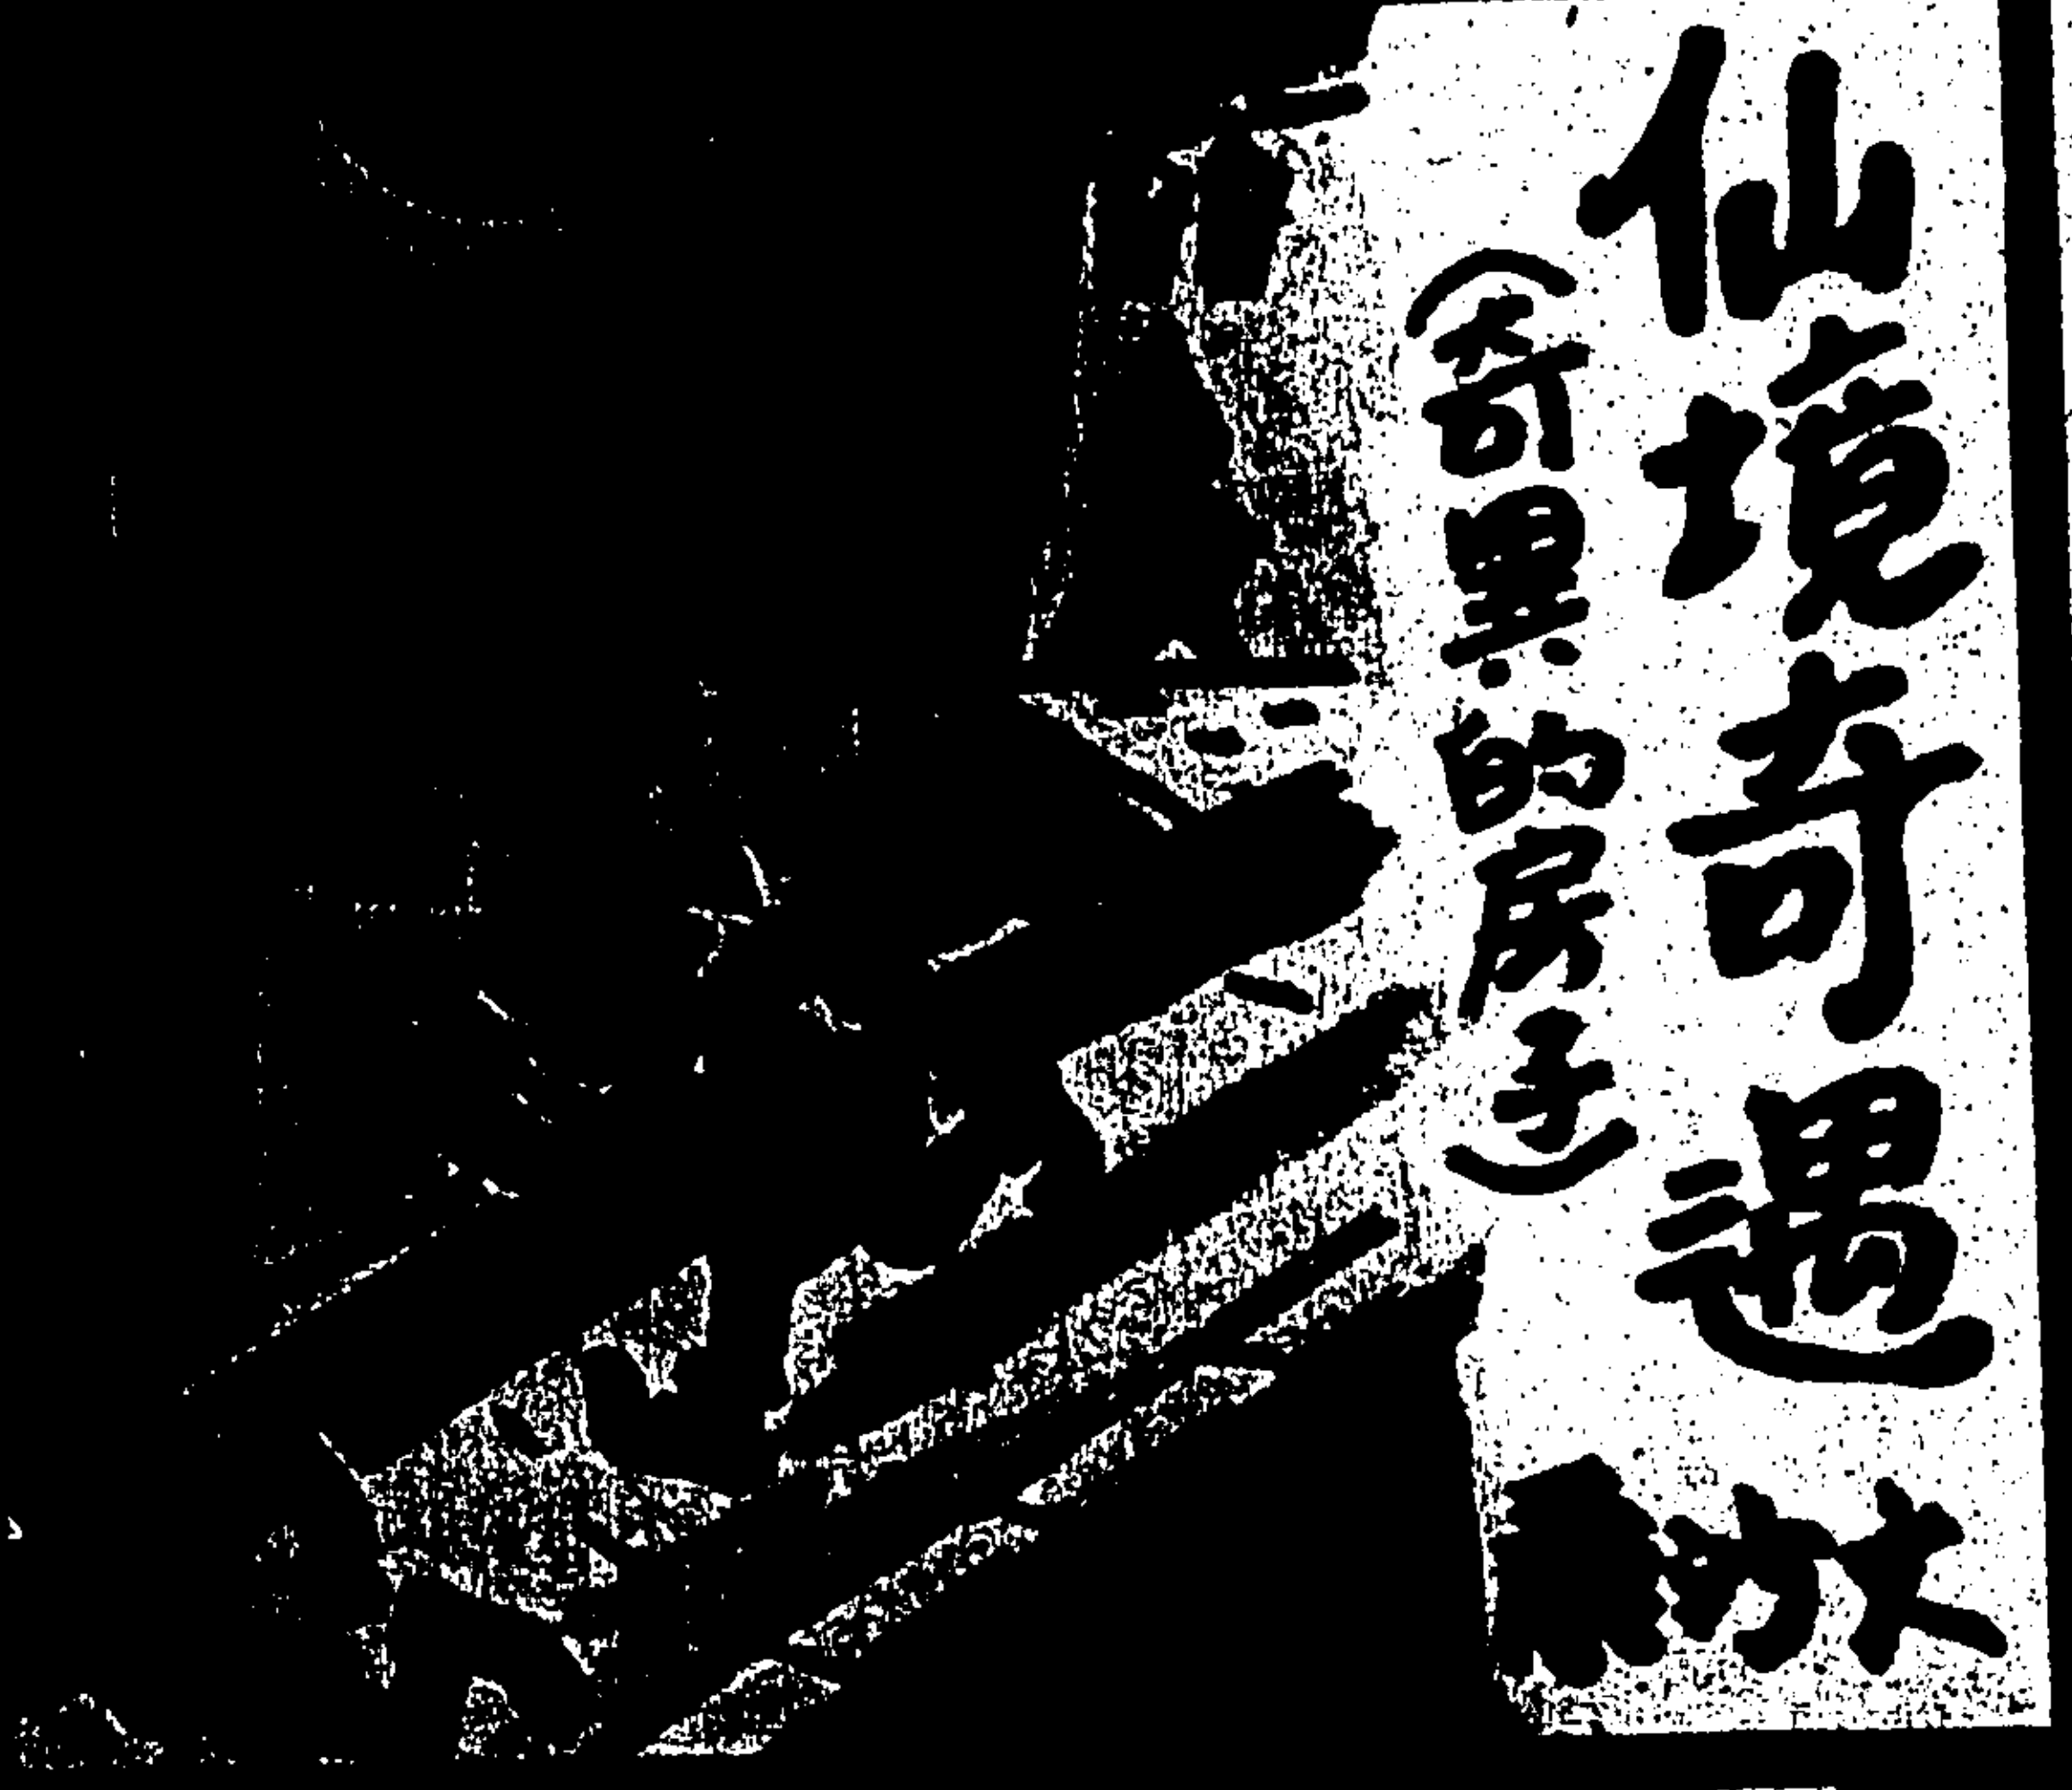 仙境奇遇
(奇異的房